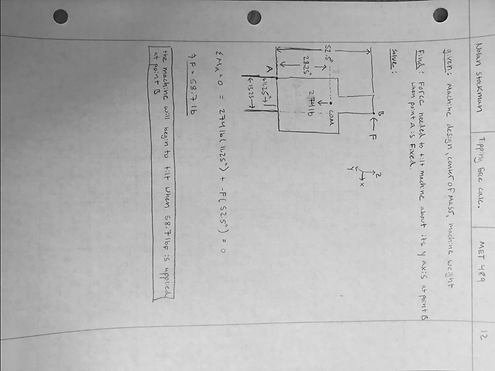 Nolan Stakman
Tipping Force calc.
MET 489
12
given: Machine design, center of Mass, machine weight
Find: Force needed to tilt machine about its y axis at point B
when point A is fixed
Solve:
52.5"
28.25"
COM
274lb
A
B
F
Z
x
y
11.25"
ΣMA = 0 = 274lb(11.25") + -F(52.5") = 0
F = 58.7lb
the machine will begin to tilt when 58.7lbf is applied
at point B